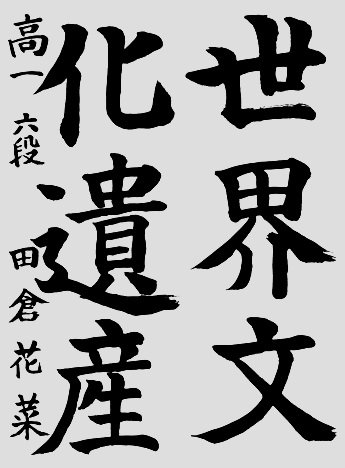 世界文
化遺産
高一 六段 田倉花菜